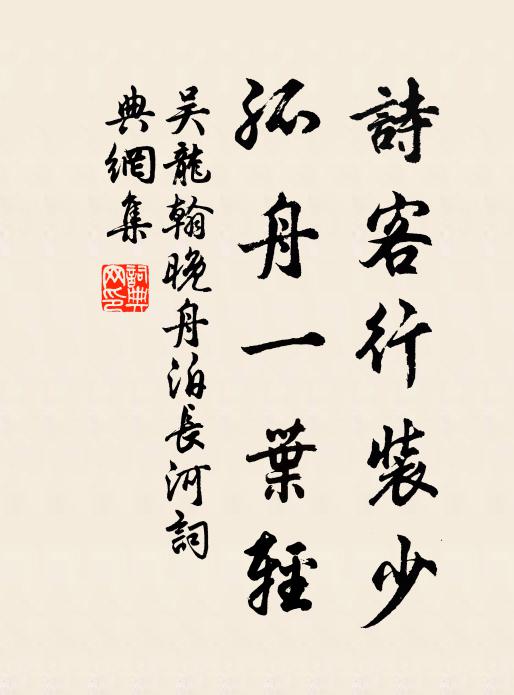 詩客行裝少
孤舟一葉輕
吳龍翰晚舟泊長河詞
典網集
詞典網印